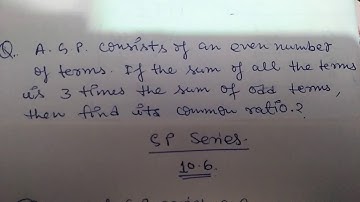 Q. A. G P. consists of an even number
of terms. If the sum of all the terms
is 3 times the sum of odd terms,
then find its common ratio.?
GP Series.
10.6.